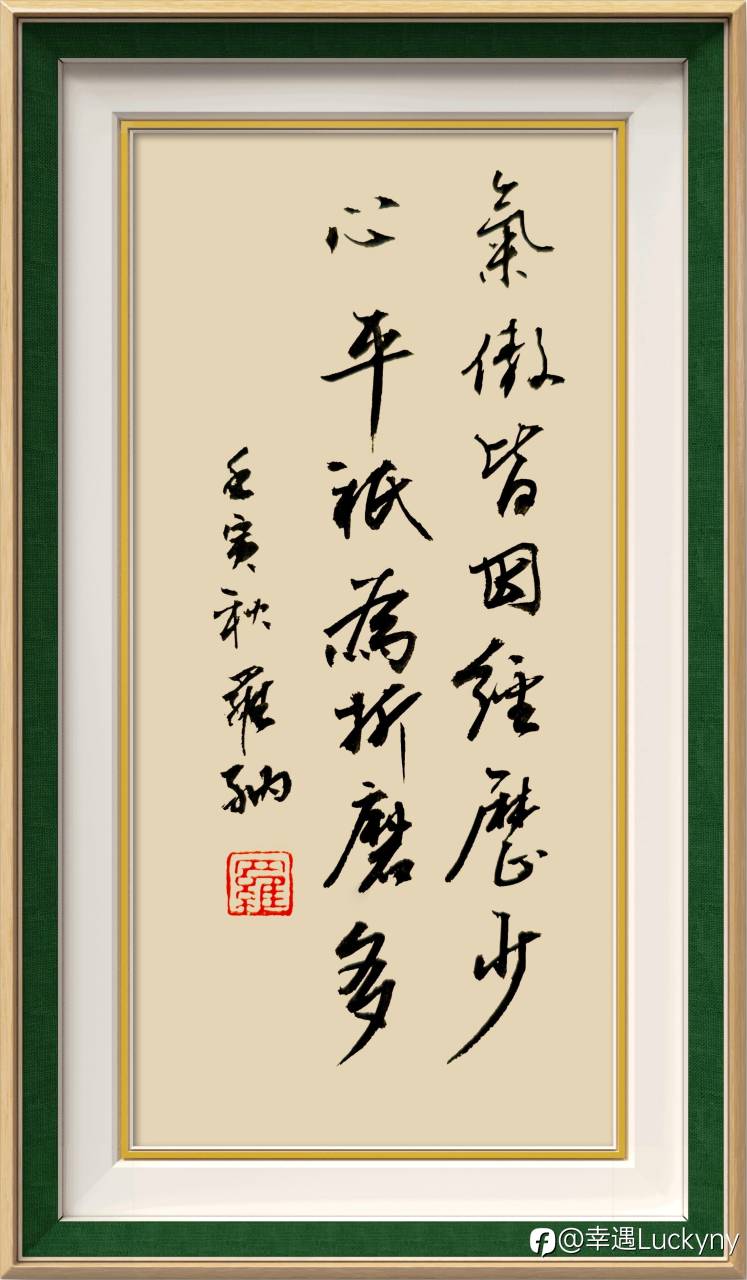 氣傲皆因經歷少
心平祇為折磨多
壬寅秋羅納
羅
@幸遇Luckyny